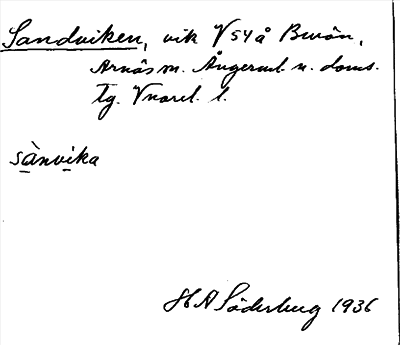 Sandviken, vik V syå Buvån,
Arnäs sn. Ångerml. n. doms.
tg. Vnorrl. l.
sànvika
H A Söderberg 1936